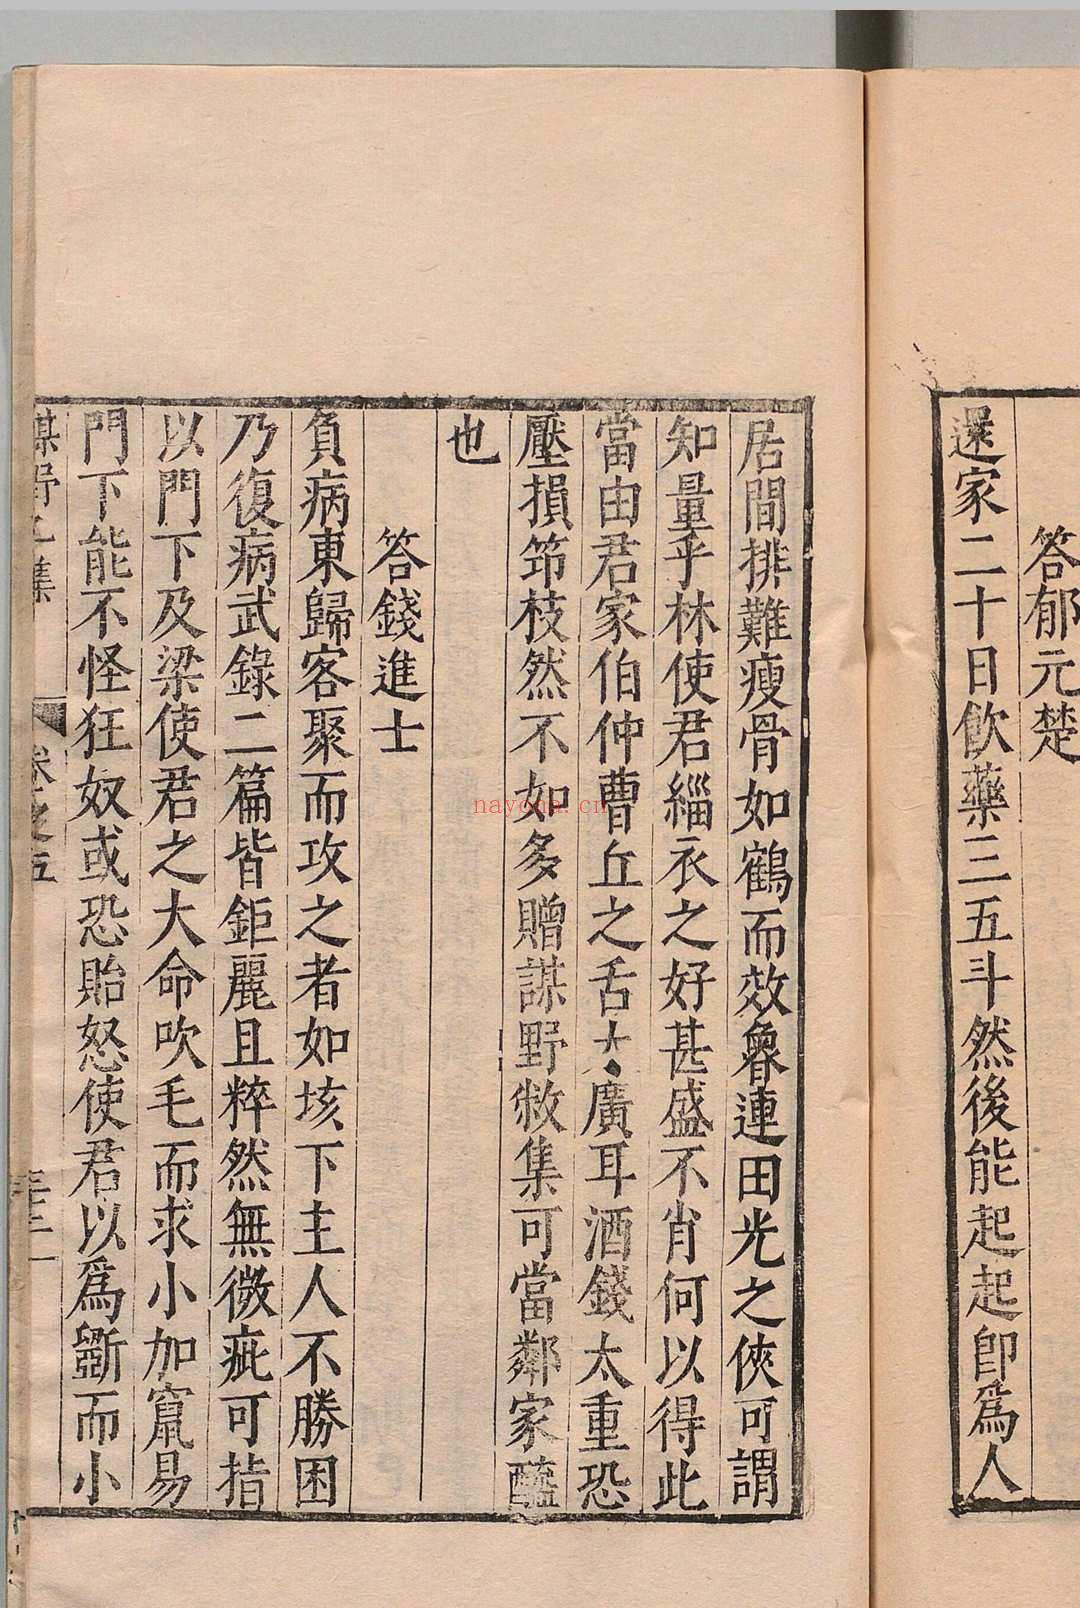 答郁元楚
還家二十日飲藥三五斗然後能起起卽爲人
居間排難瘦骨如鶴而效魯連田光之俠可謂
知量乎林使君緇衣之好甚盛不肖何以得此
當由君家伯仲曹丘之舌太廣耳酒錢太重恐
壓損笻枝然不如多贈謀野敝集可當鄰家醯
也
答錢進士
負病東歸客聚而攻之者如垓下主人不勝困
乃復病武錄二篇皆鉅麗且粹然無微疵可指
以門下及梁使君之大命吹毛而求小加竄易
門下能不怪狂奴或恐貽怒使君以爲斵而小
謀野乙集
卷之五
三十二
nayona.cn